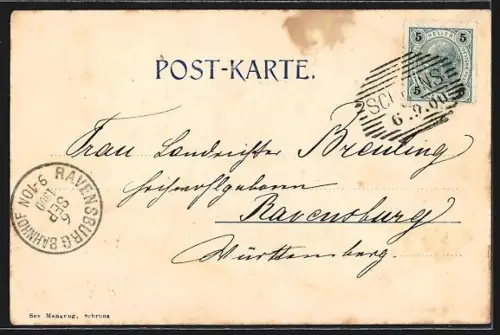 5 HELLER 5
5 5
POST-KARTE.
SCHRUNS
6.9.00
Frau Landrichter Breuling
hochwohlgeboren
Ravensburg
Württemberg.
RAVENSBURG BAHNHOF NO1-6
6
SEP
1900
Sev Manarng, Schruns